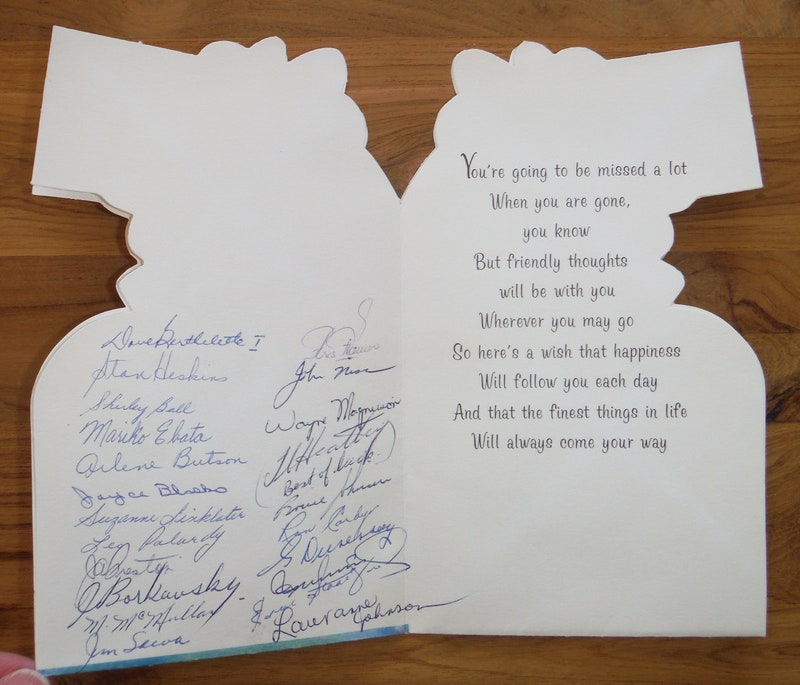 Dave Berthelette I
Stan Heskins
Shirley Ball
Mariko Ebata
Arlene Butson
Joyce
Suzanne Linklater
Len Palardy
Borkowsky
M. McMullan
Jim
John
Wayne Magnusson
(Best of luck.)
Ron
Lauranne
Johnson
You're going to be missed a lot
When you are gone,
you know
But friendly thoughts
will be with you
Wherever you may go
So here's a wish that happiness
Will follow you each day
And that the finest things in life
Will always come your way